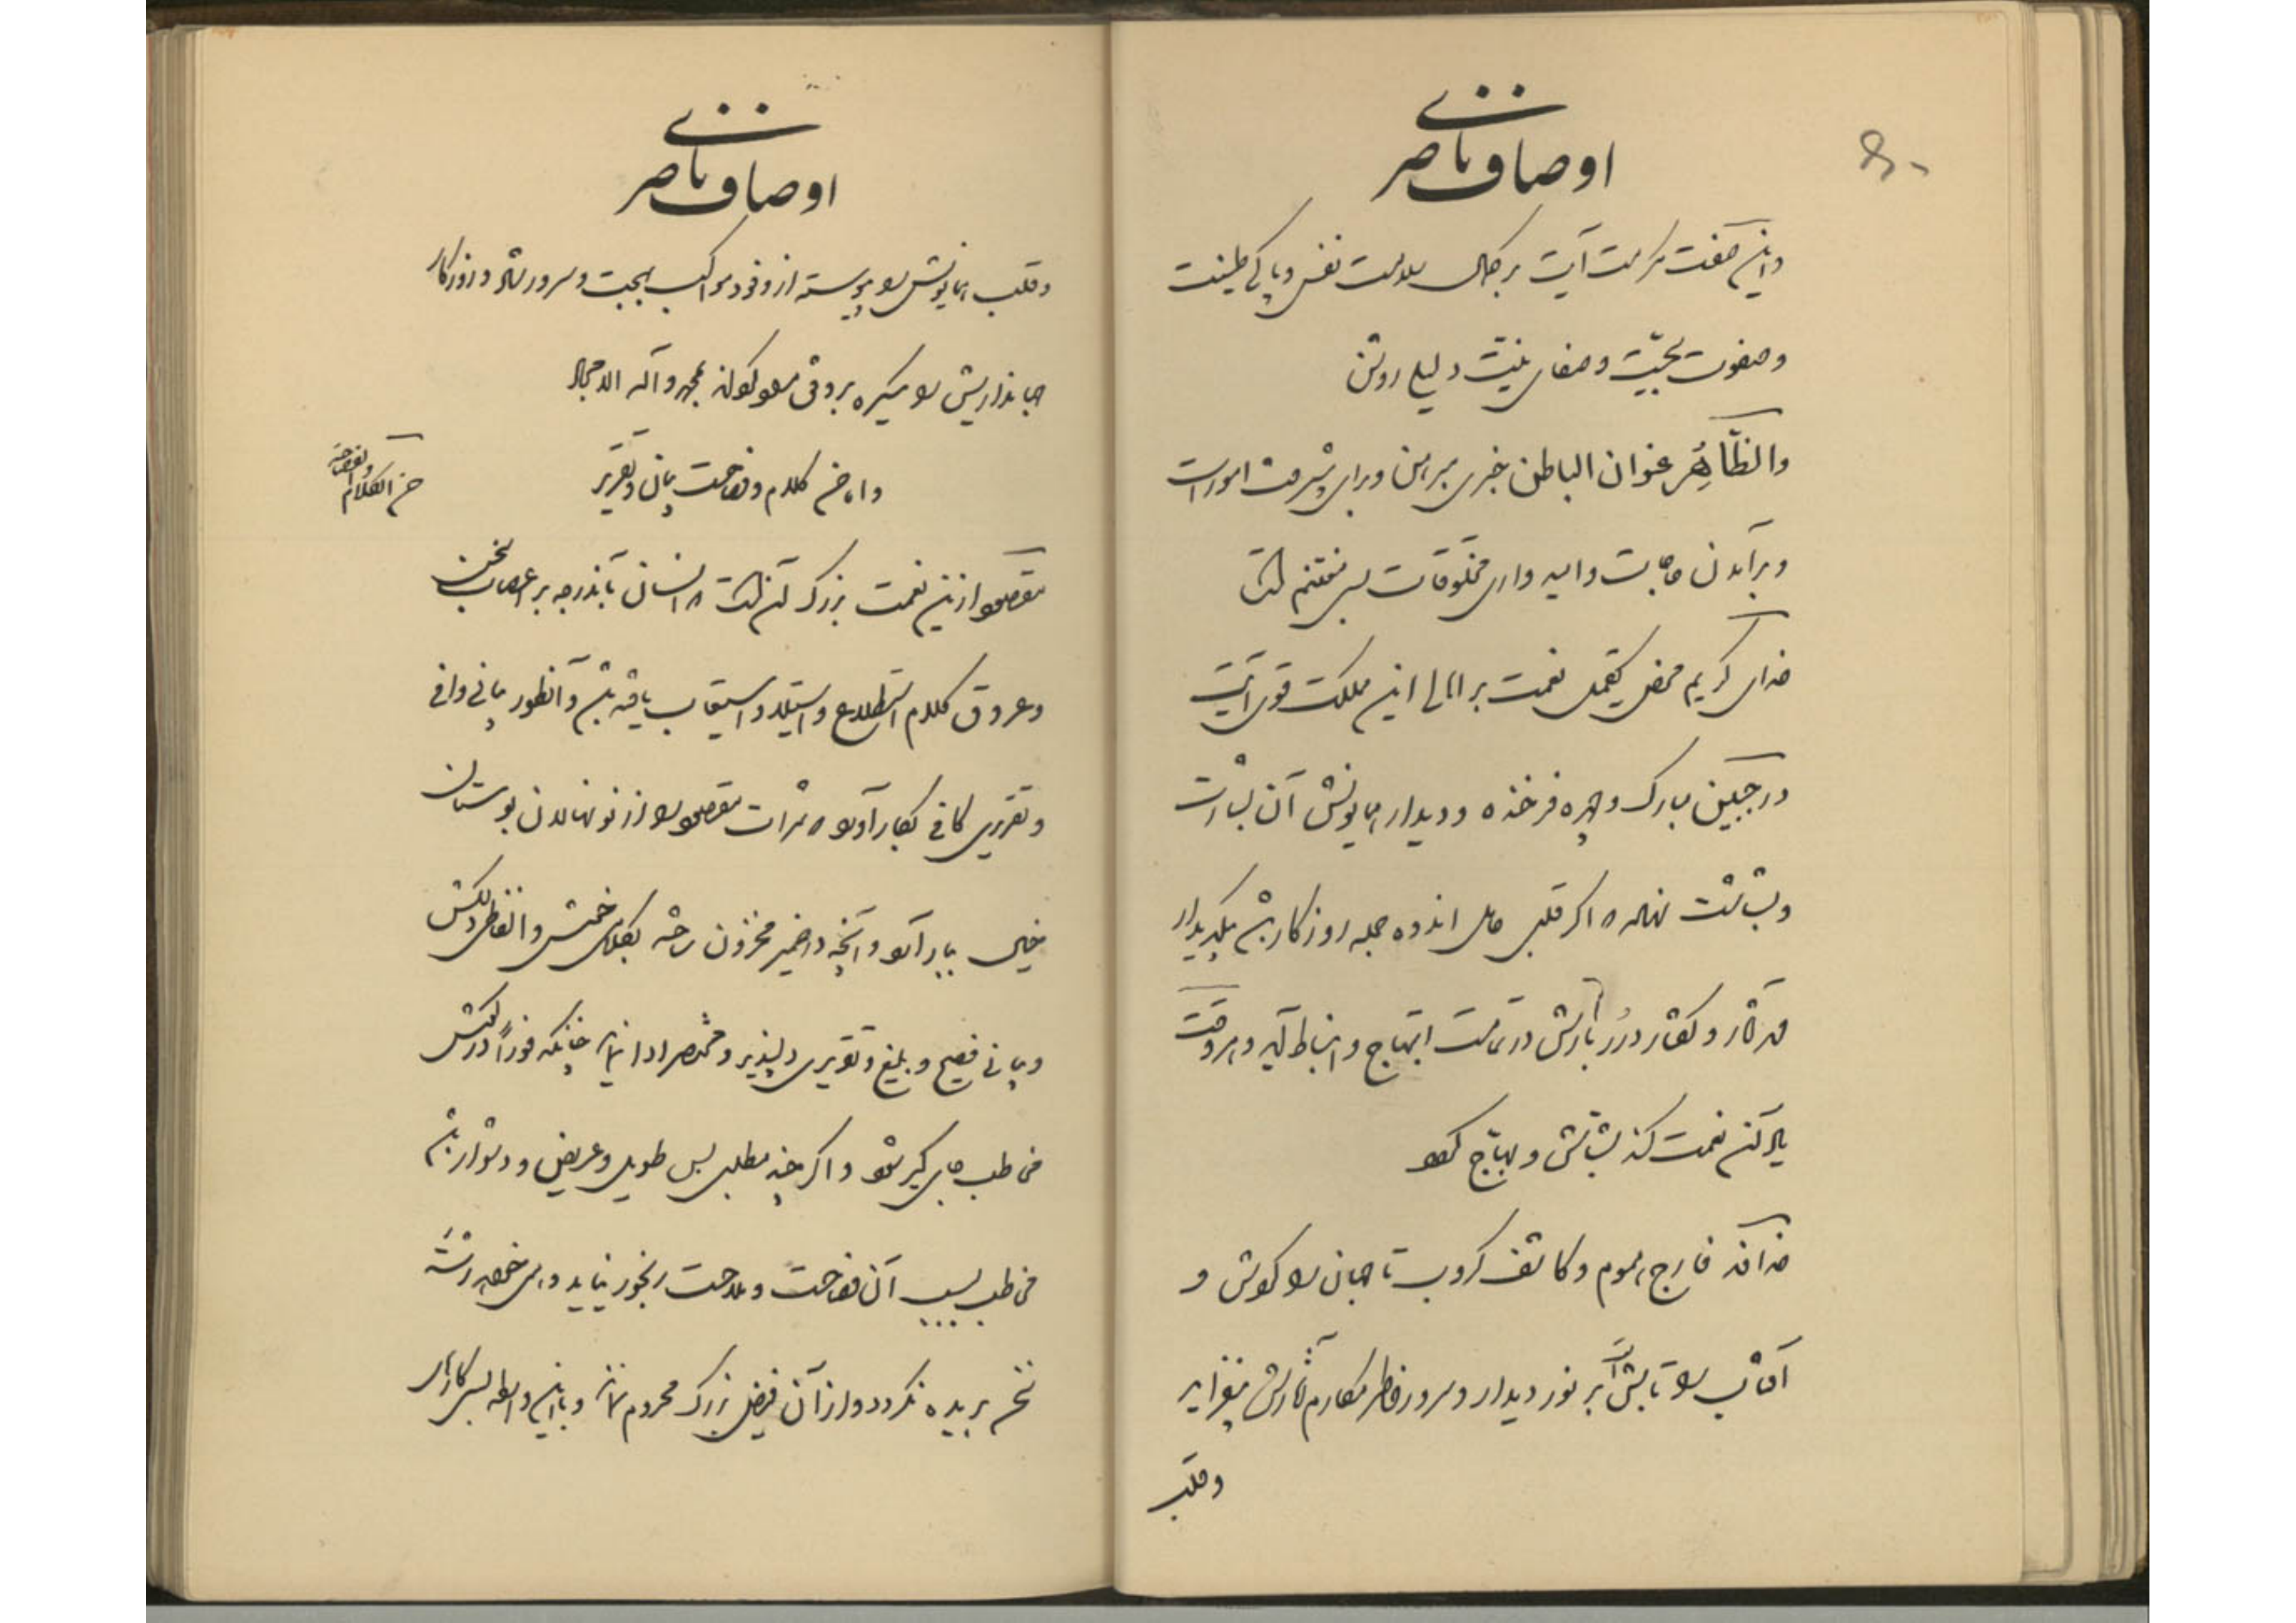 اوصاف ناصری
واین صفت مرحمت آیت بر جمال سلامت نفس و پاکی طینت
و صفوت سجیّت و صفای نیّت دلیلی روشن
والظّاهِرُ عنوان الباطن خبری مبرهن و برای پیشرفت امورات
و برآمدن حاجات و امیدواری مخلوقات بسی مغتنم است
خدای کریم محض تکمیل نعمت بر اهالی این مملکت قوی آیت
در جبین مبارک و چهره فرخنده و دیدار همایونش آن بشارت
و بشاشت نهاده که اگر قلبی حامل اندوه جمله روزگار باشد بیکدیدار
فرح آثار و گفتار دُرَر بارش در نهایت ابتهاج و انبساط آید و هر وقت
یاد آن نعمت کند بشّاش و بهّاج گردد
خداوند فارج هموم و کاشف کروب تا جهان را گردش و
آفتاب را تابش است بر نور دیدار و سرور خاطر مکارم آثارش بیفزاید
و قلب
اوصاف ناصری
و قلب همایونش را پیوسته از وفود مواکب بهجت و سرور شاد و روزگار
جهانداریش را همیره بر وفق مراد گرداند بمحمد و آله الامجاد
و اما حسن کلام و فصاحت بیان و تقریر
حسن الکلام والفصاحة
مقصود از این نعمت بزرگ آن است که انسان بآندرجه بر اعصاب سخن
و عروق کلام استطلاع و استیلا و استیعاب یافته باشد و آنطور بیانی وافی
و تقریری کافی بکار آورد که ثمرات مقصود را از نونهالان بوستان
خیال ببار آرد و آنچه در ضمیر مخزون داشته بکلماتی خوش و الفاظی دلکش
و بیانی فصیح و بلیغ و تقریری دلپذیر و مختصر ادا نماید چنانکه فوراً در گوش
مخاطب جای گیر شود و اگر چند مطلبی بس طویل و عریض و دشوار باشد
مخاطب بسبب آن فصاحت و ملاحت رنجور نیاید و هم شخص را رشته
سخن بریده نگردد و از آن فیض بزرگ محروم نماند و باین واسطه بسی کارهای